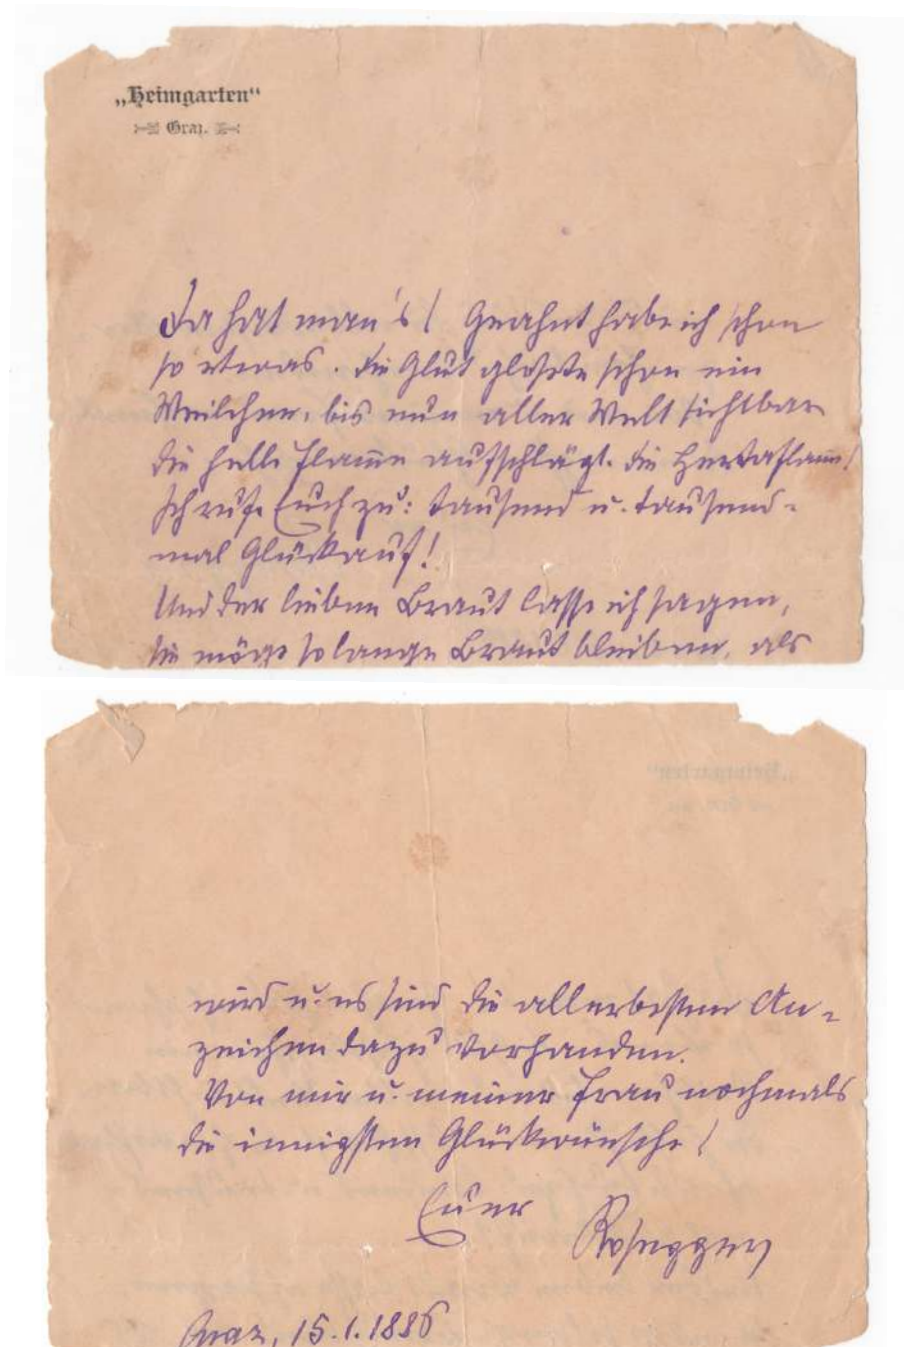 „Heimgarten“
Graz.
Da hat man's! Geahnt habe ich schon
so etwas. Die Glut gloste schon ein
Weilchen, bis nun aller Welt sichtbar
die helle Flamme aufschlägt. Die
Ich rufe Euch zu: Tausend u. tausend-
mal Glückauf!
Und der lieben Braut lasse ich sagen,
sie möge so lange Braut bleiben, als
wird u. es sind die allerbesten An-
zeichen dazu vorhanden.
Von mir u. meiner Frau nochmals
die innigsten Glückwünsche!
Euer
Rosegger
Graz, 15.1.1886